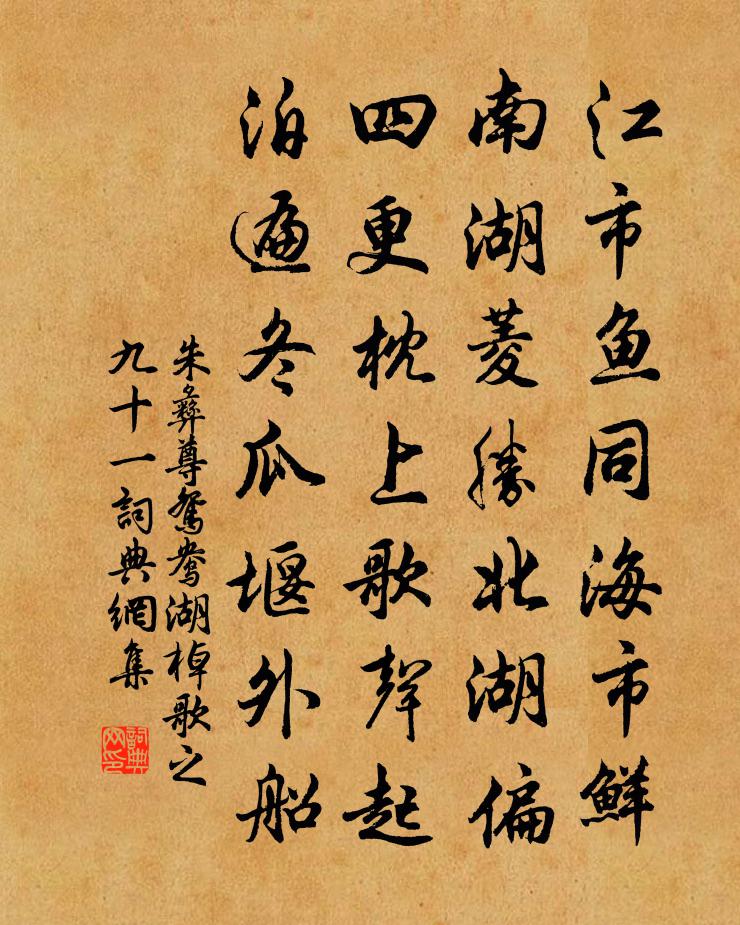 江市鱼同海市鮮
南湖菱勝北湖偏
四更枕上歌聲起
泊遍冬瓜堰外船
朱彝尊鴛鴦湖棹歌之
九十一詞典網集
詞典
网印